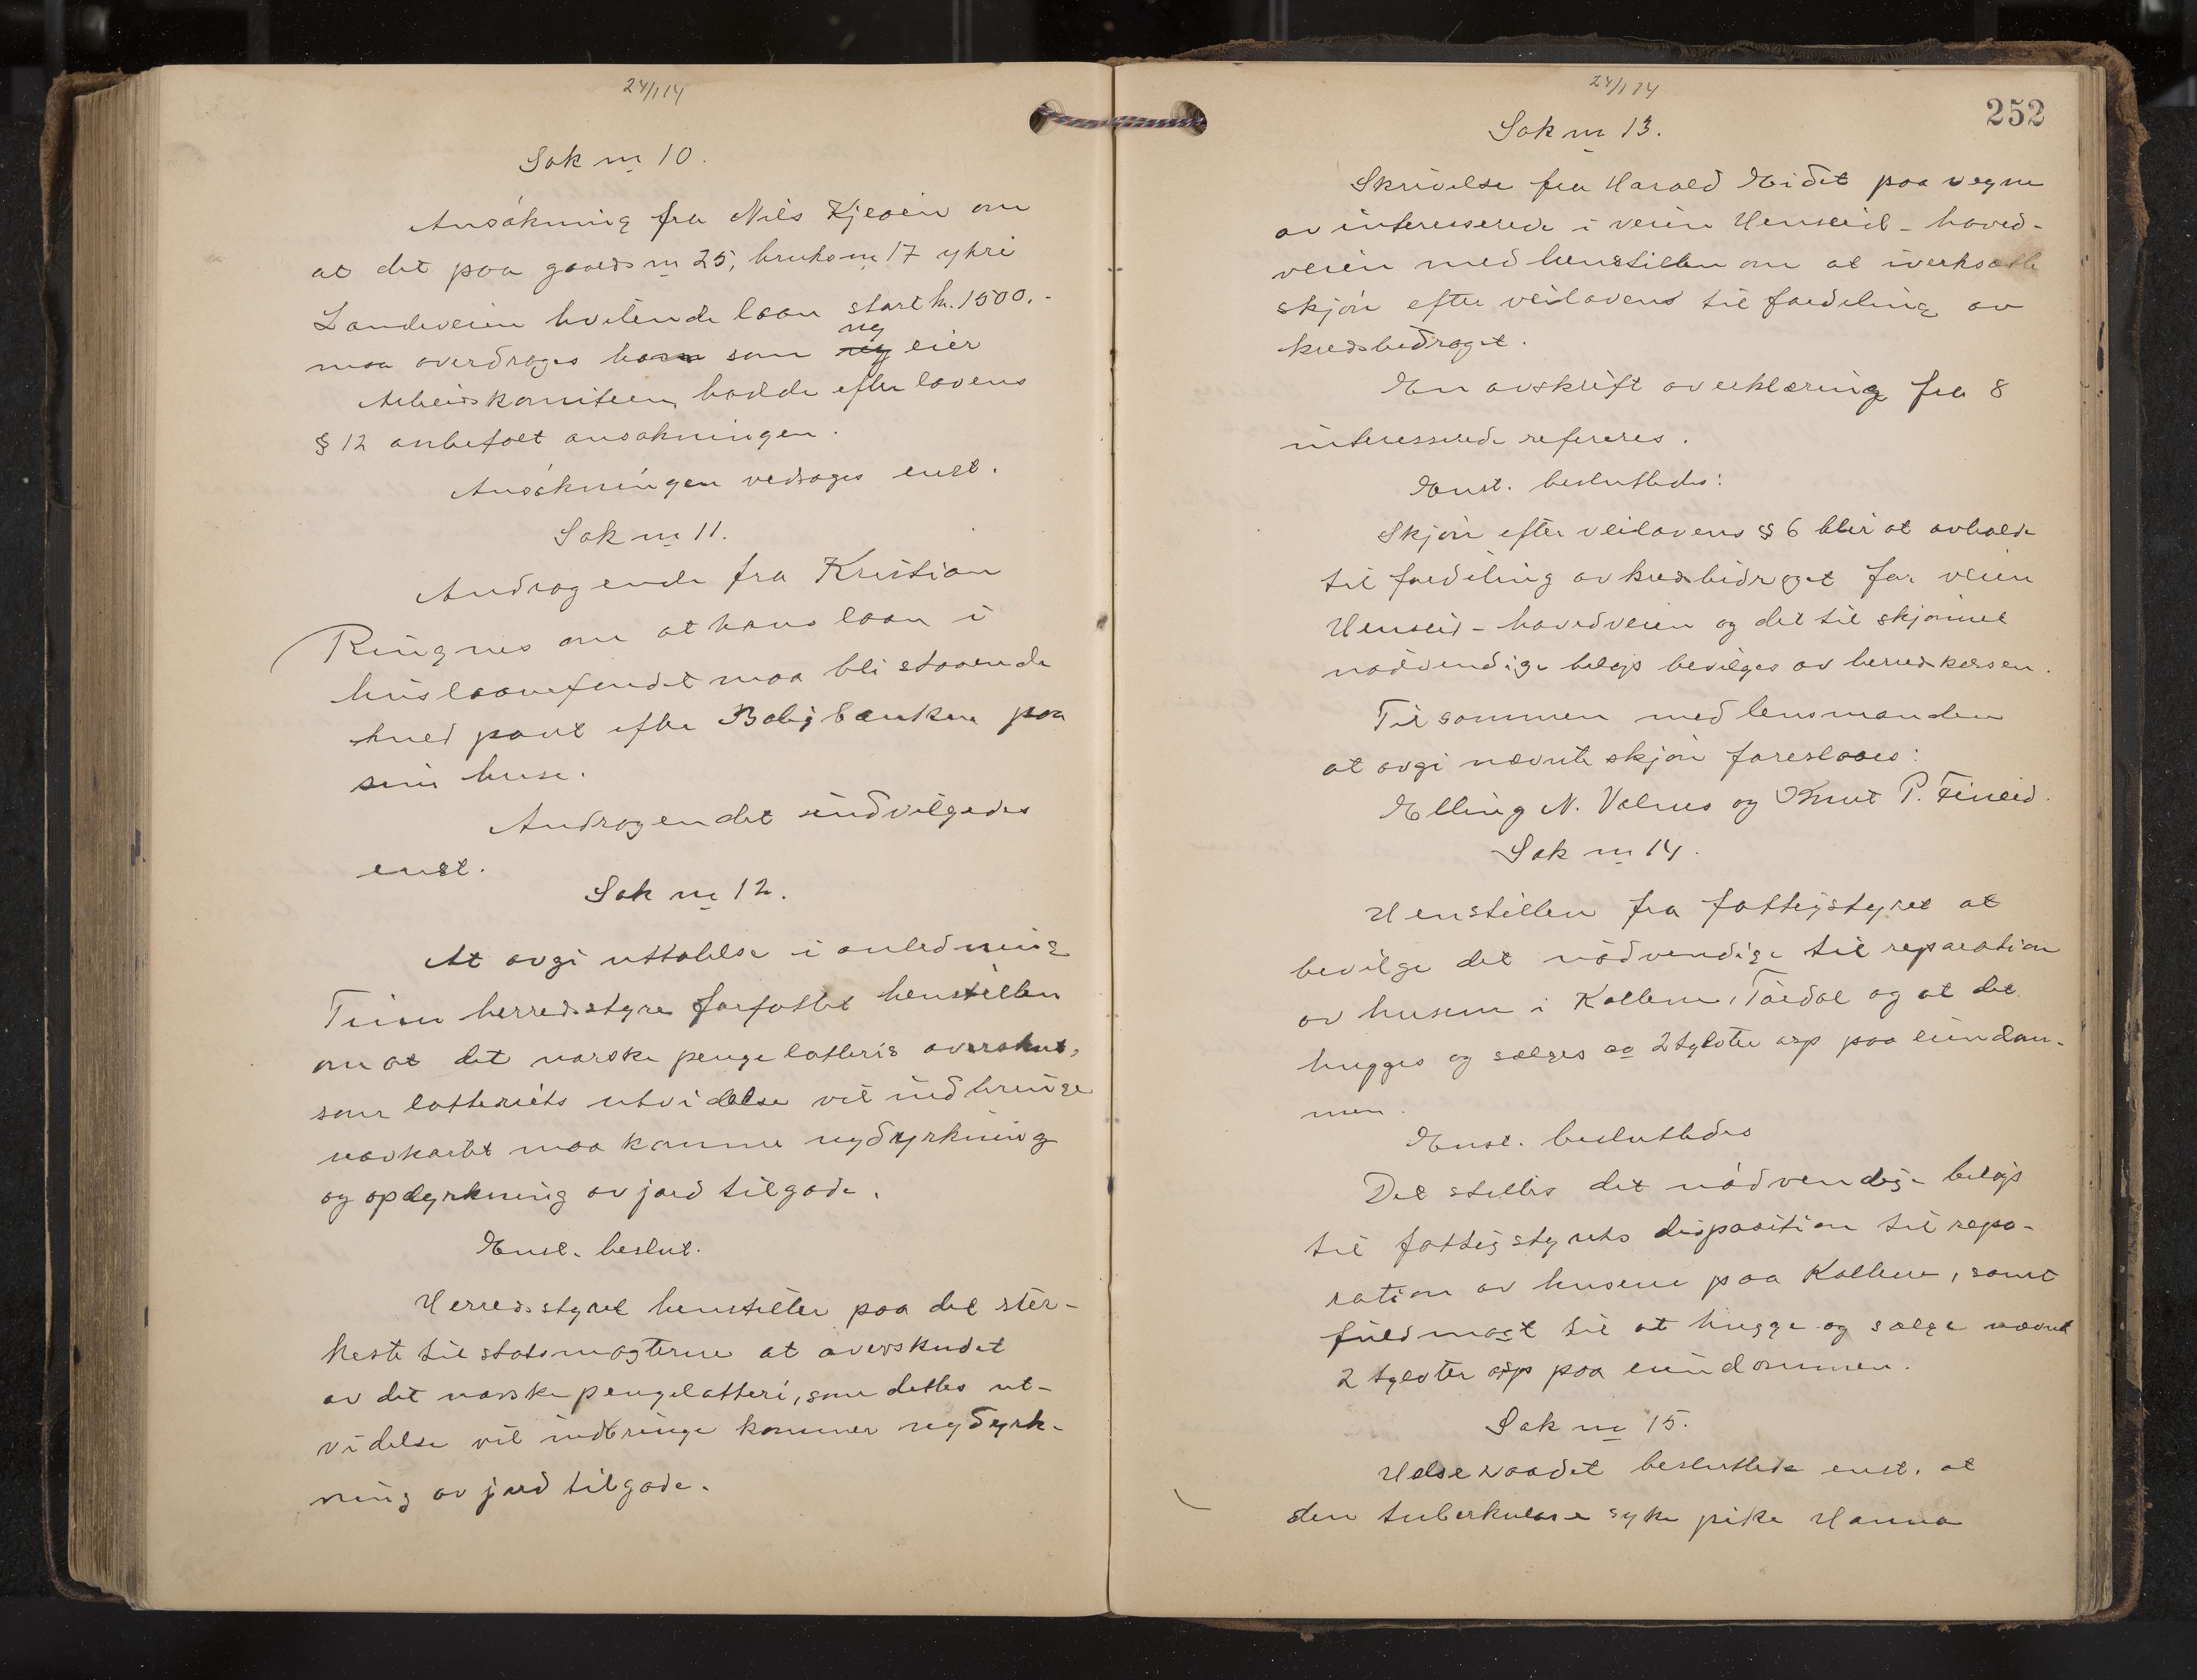 24/1 14
Sak nr 10.
Ansökning fra Nils Kjeøen om
at det paa gaards nr 25, bruks nr 17 ytre
Landeveien hvilende laan stort kr. 1500.-
ny
maa overdrages ham som ny eier
Arbeidskomiteen hadde efter lovens
§ 12 anbefalt ansøkningen.
Ansökningen vedtoges enst.
Sak nr 11.
Andragende fra Kristian
Ringnes om at hans laan i
huslaanefondet maa bli staaende
med pant efter Boligbanken paa
sine huse.
Andragendet indvilgedes
enst.
Sak nr 12.
At avgi uttalelse i anledning
Tinn herredsstyre forfattet henstillen
om at det norske pengelotteris overskut,
som lotteriets utvidelse vil indbringe
uavkortet maa komme nydyrkning
og opdyrkning av jord tilgode.
Enst. beslut.
Herredsstyret henstiller paa det ster-
keste til statsmagterne at overskudet
av det norske pengelotteri, som dettes ut-
videlse vil indbringe kommer nydyrk-
ning av jord tilgode.
24/1 14
252
Sak nr 13.
Skrivelse fra Harald Eidet paa vegne
av interesserede i veien Henseid - hoved-
veien med henstillen om at iverksætte
skjön efter veilovens til fordeling av
kredsbidraget.
En avskrift av erklæring fra 8
interesserede refereres.
Enst. besluttedes:
Skjön efter veilovens § 6 blir at avholde
til fordeling av kredsbidraget for veien
Henseid - hovedveien og det til skjönnet
nødvendige beløp bevilges av herredskassen.
Til sammen med lensmanden
at avgi nævnte skjön foreslaaes:
Elling N. Valnes og Knut P. Fineid.
Sak nr 14.
Henstillen fra fattigstyret at
bevilge det nödvendige til reparation
av husene i Kollene, Tørdal og at det
hugges og sælges ca 2 tylvter asp paa eiendom-
men.
Enst. besluttedes
Det stilles det nödvendige beløp
til fattigstyrets disposition til repa-
ration av husene paa Kollene, samt
fuldmagt til at hugge og sælge nævnt
2 tylvter asp paa eiendommen.
Sak nr 15.
Helseraadet besluttede enst. at
den tuberkuløse syke pike Hanna